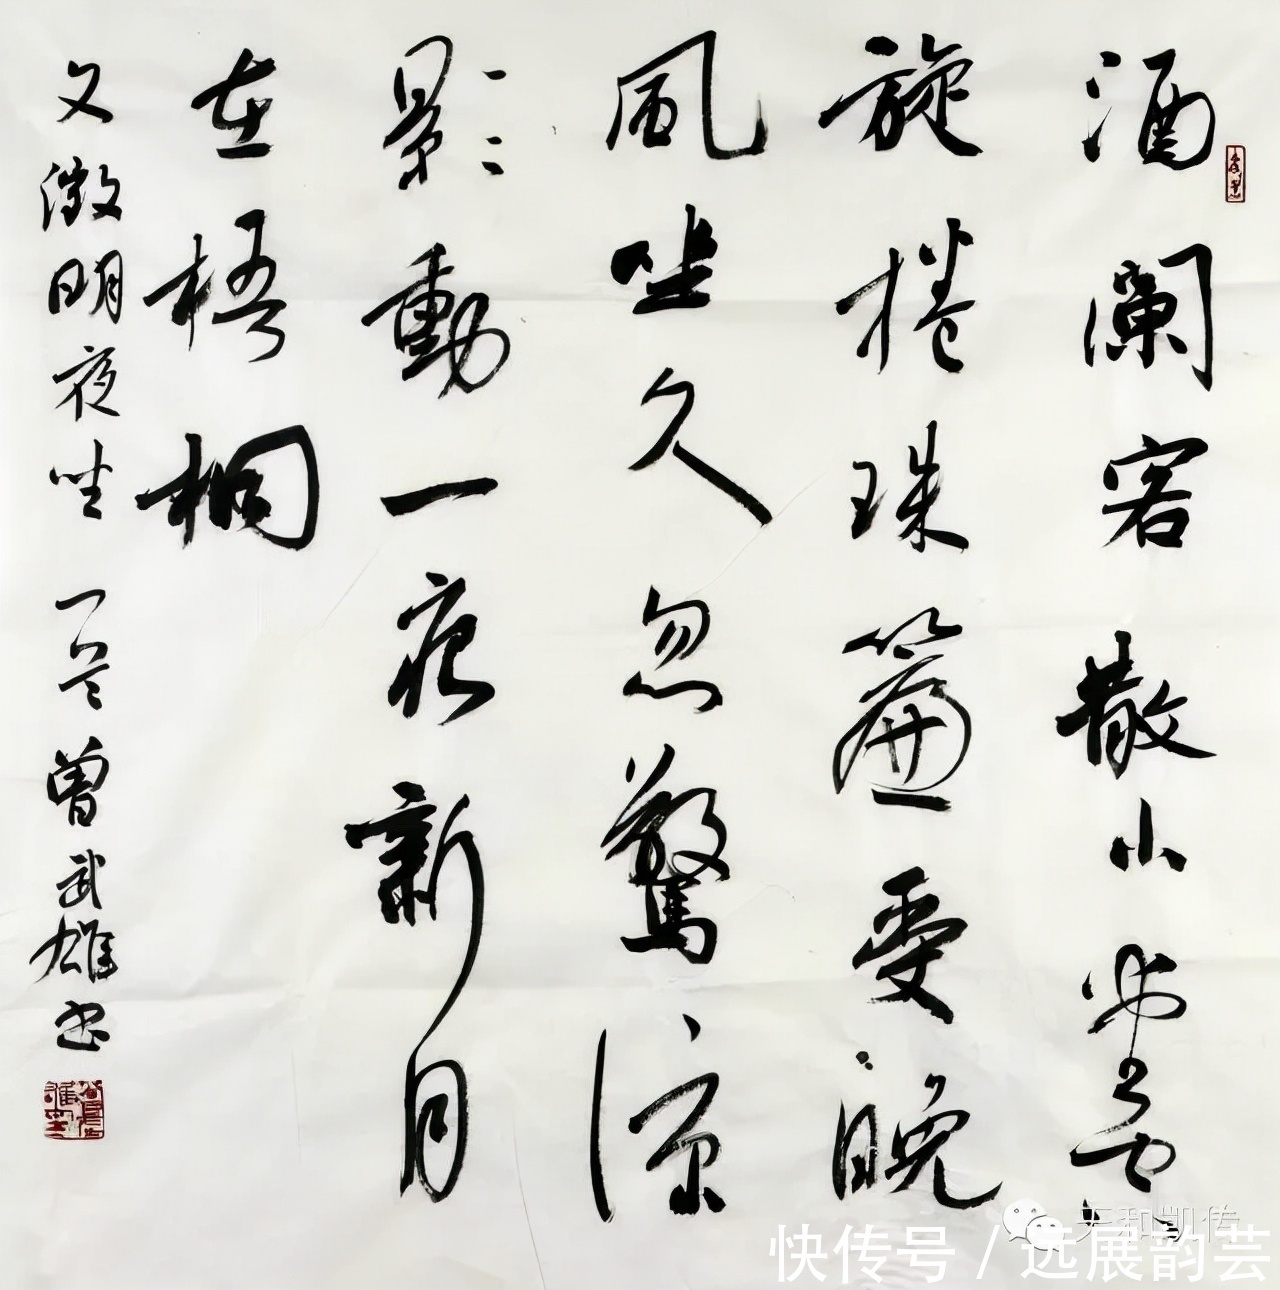 酒闌客散小堂空
旋捲珠簾受晚
風坐久忽驚涼
影動一痕新月
在梧桐
文徵明夜坐 曾武雄书
天和凯传
快传号 / 远展韵芸